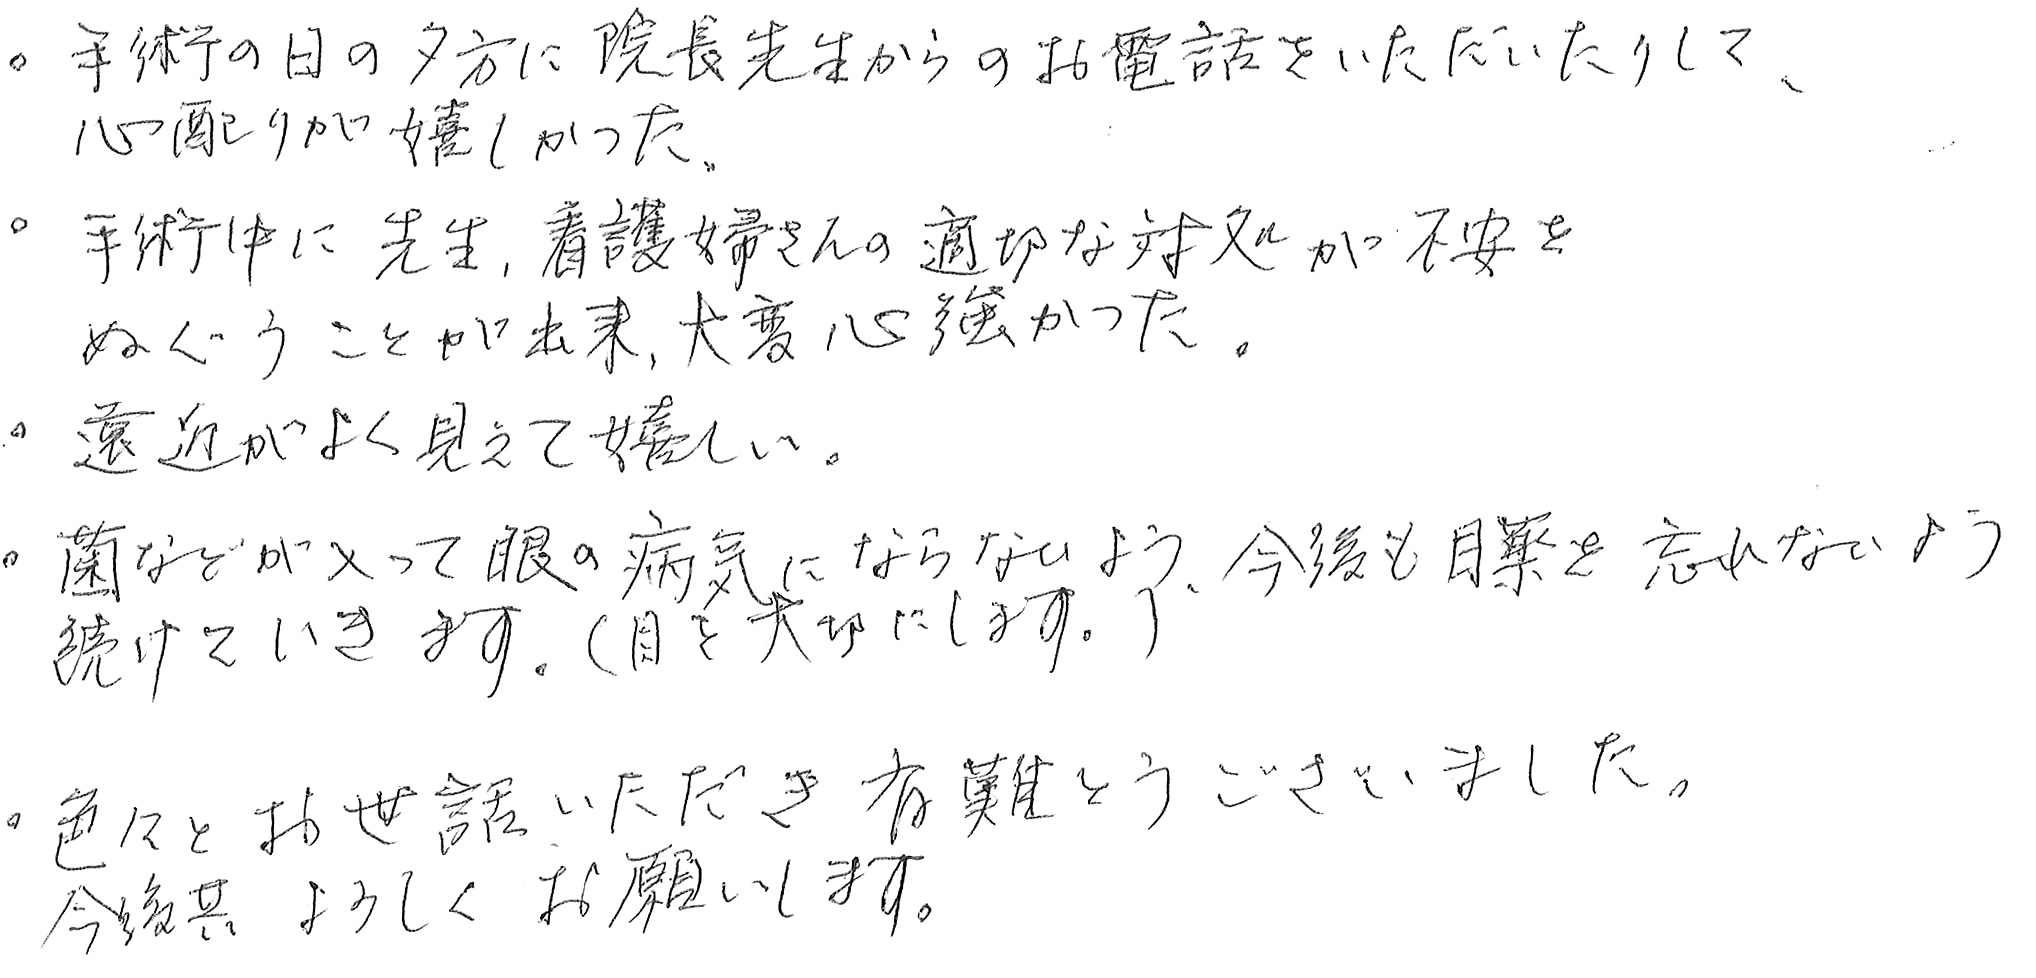 。手術の日の夕方に院長先生からのお電話をいただいたりして、
心配りが嬉しかった。
。手術中に先生,看護婦さんの適切な対処が不安を
ぬぐうことが出来,大変心強かった。
。遠近がよく見えて嬉しい。
。菌などが入って眼の病気にならないよう、今後も目薬を忘れないよう
続けていきます。(目を大切にします。)
。色々とお世話いただき有難とうございました。
今後共よろしくお願いします。